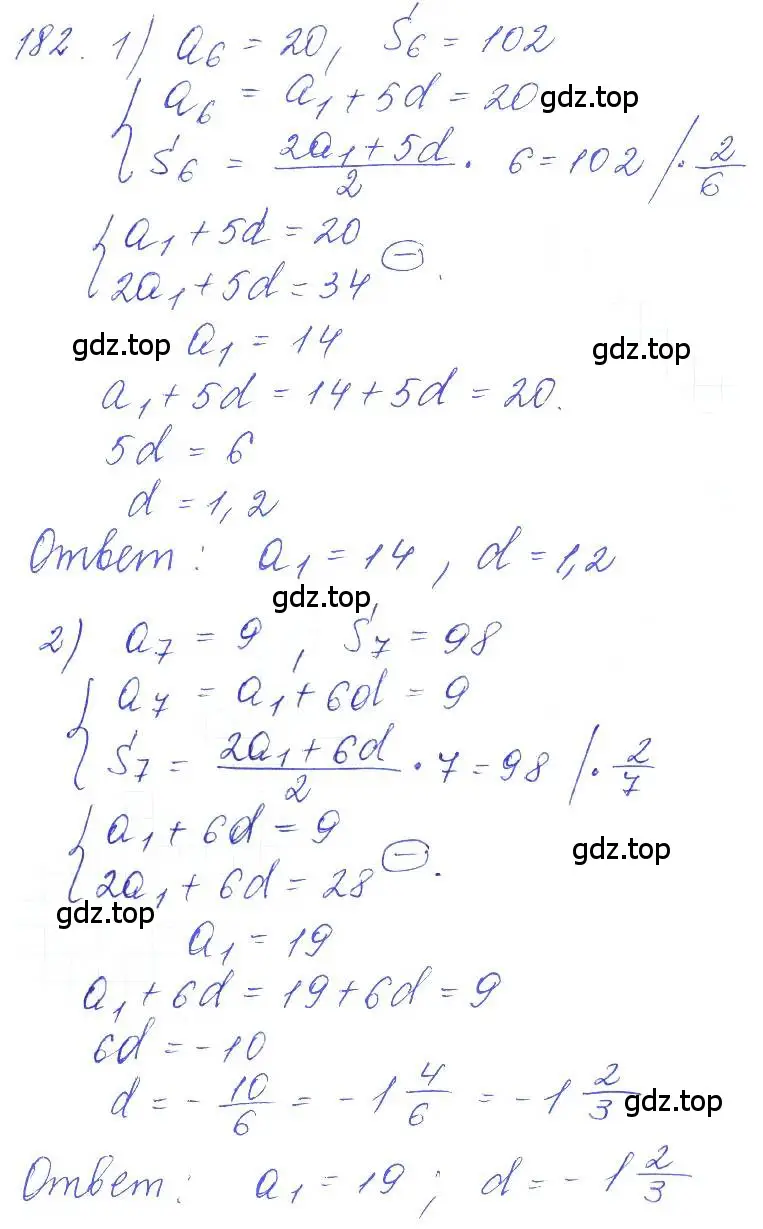 182. 1) a₆ = 20, S₆ = 102
{ a₆ = a₁ + 5d = 20 gdz.top
S₆ = (2a₁ + 5d)/2 · 6 = 102 / · 2/6
{ a₁ + 5d = 20
2a₁ + 5d = 34 ⊖.
gdz.top a₁ = 14 gdz.top
a₁ + 5d = 14 + 5d = 20.
5d = 6
d = 1,2
Ответ: a₁ = 14, d = 1,2
gdz.top
2) a₇ = 9, S₇ = 98
{ a₇ = a₁ + 6d = 9
S₇ = (2a₁ + 6d)/2 · 7 = 98 / · 2/7
{ a₁ + 6d = 9
gdz.top
2a₁ + 6d = 28 ⊖.
gdz.top
a₁ = 19
a₁ + 6d = 19 + 6d = 9
6d = -10
d = - 10/6 = -1 4/6 = -1 2/3 gdz.top
Ответ: a₁ = 19; d = -1 2/3